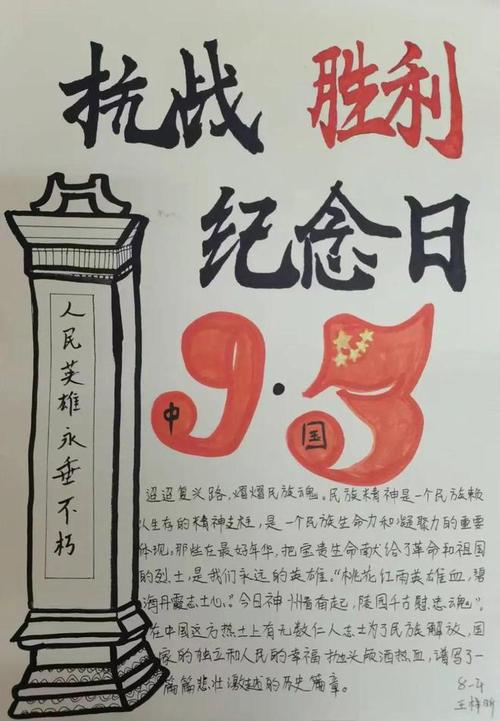 抗战 胜利
纪念日
9·3
中
国
人民英雄永垂不朽
迢迢复兴路,熠熠民族魂。民族精神是一个民族赖
以生存的精神支柱,是一个民族生命力和凝聚力的重要
体现,那些在最好年华,把宝贵生命献给了革命和祖国
的烈士,是我们永远的英雄。“桃花红雨英雄血,碧
海丹霞志士心。”今日神州看奋起,陵园千古慰忠魂”。
在中国这方热土上有无数仁人志士为了民族解放,国
家的独立和人民的幸福抛头颅洒热血,谱写了一
篇篇悲壮激越的历史篇章。
8-4
王